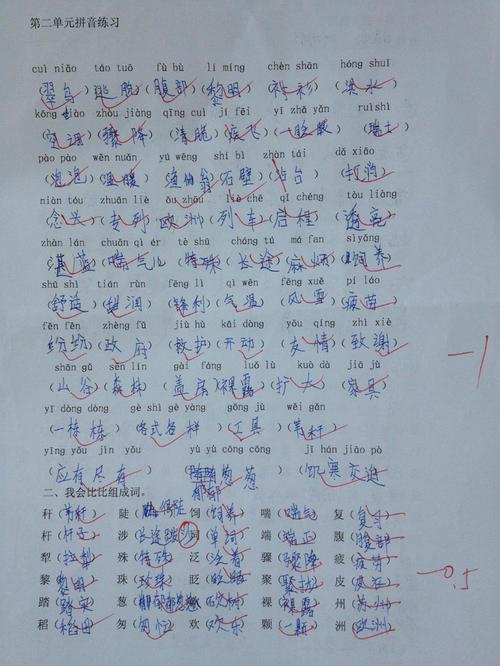 第二单元拼音练习
cuì niǎo táo tuō fù bù lí míng chèn shān hóng shuǐ
(翠鸟)(逃脱)(腹部)(黎明)(衬衫)(洪水)
kōng diào zhòu jiàng qīng cuì jí fēi yī zhǎ yǎn ruì shì
(空调)(骤降)(清脆)(疾飞)(一眨眼)(瑞士)
pào pào wēn nuǎn yú wēng shí bì zhàn tái dǎ
(泡泡)(温暖)(渔翁)(石壁)(站台)
niàn tóu zhuān liè ōu zhōu liè chē qǐ chéng tòu liàng
(念头)(专列)(欧洲)(列车)(启程)(透亮)
zhàn lán chuǎn qì ér tè shū cháng tú má fan sì yǎng
(湛蓝)(喘气儿)(特殊)(长途)(麻烦)(饲养)
shū shì tián rùn fēng lì qì wēn fēng xuě
(舒适)(甜润)(锋利)(气温)(风雪)(疫苗)
fēn fēn zhèng fǔ jiù hù kāi dòng yǒu qíng zhì xiè
(纷纷)(政府)(救护)(开动)(友情)(致谢)
shān gǔ sēn lín gài fáng luǒ lù kuò dà jiā jù
(山谷)(森林)(盖房)(裸露)(扩大)(家具)
yī dòng dòng gè shì gè yàng gōng jù wěi gǎn
(一栋栋)(各式各样)(工具)(苇秆)
yīng yǒu jìn yǒu yù yù cōng cōng jī hán jiāo pò
(应有尽有)(郁郁葱葱)(饥寒交迫)
二、我会比比组成词。
秆(苇秆) 陡( 饲(饲养) 喘(喘气) 复(复习)
杆( 涉(长途跋涉) 词(单词) 端(端正) 腹(腹部)
犁(拉犁) 殊(特殊) 泛( 骤(骤降) 疲(
黎(黎明) 珠(珍珠) 眨(眨眼) 聚( 皮(
踏( 葱(郁郁葱葱) 裸(裸露) 州(苏州)
稻(稻田) 匆(匆忙) 欢( 颗(一颗) 洲(欧洲)
-1
-0.5